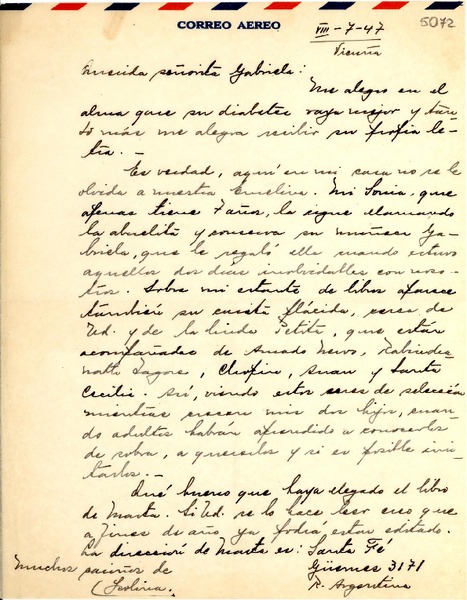 CORREO AEREO
5072
VIII - 7 - 47
Vicuña
Querida señorita Gabriela:
Me alegro en el
alma que su diabetes vaya mejor y tan-
to más me alegra recibir su propia le-
tra. -
Es verdad, aquí en mi casa no se le
olvida a nuestra Emelina. Mi Sonia, que
apenas tiene 7 años, la sigue llamando
la abuelita y conserva su muñeca Ga-
briela, que le regaló ella cuando estuvo
aquellos dos días inolvidables con noso-
tros. Sobre mi estante de libros aparece
también su carita plácida, cerca de
Ud. y de la linda Petita, que están
acompañadas de Amado Nervo, Rabindra-
nath Tagore, Chopin, Juan y Santa
Cecilia. Así, viendo estos seres de selección
mientras crecen mis dos hijos, cuan-
do adultos habrán aprendido a conocerlos
de sobra, a quererlos y si es posible imi-
tarlos. -
Qué bueno que haya llegado el libro
de Marta. Si Ud. se lo hace leer creo que
a fines de año ya podrá estar editado.
La dirección de Marta es: Santa Fé
Güemes 3171
R. Argentina
Muchos cariños de